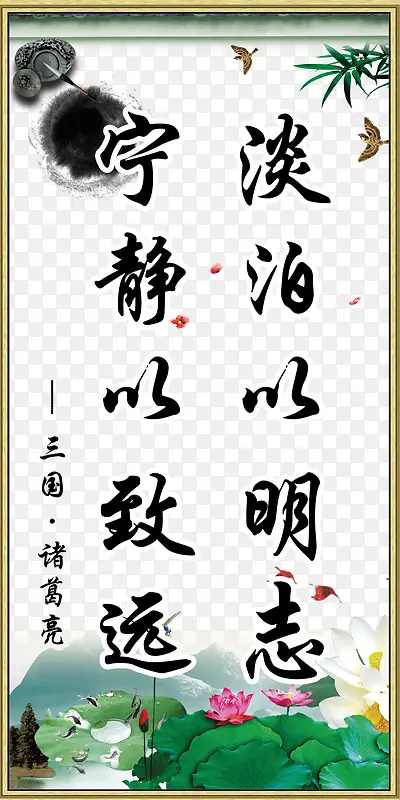 淡泊以明志
宁静以致远
—三国·诸葛亮